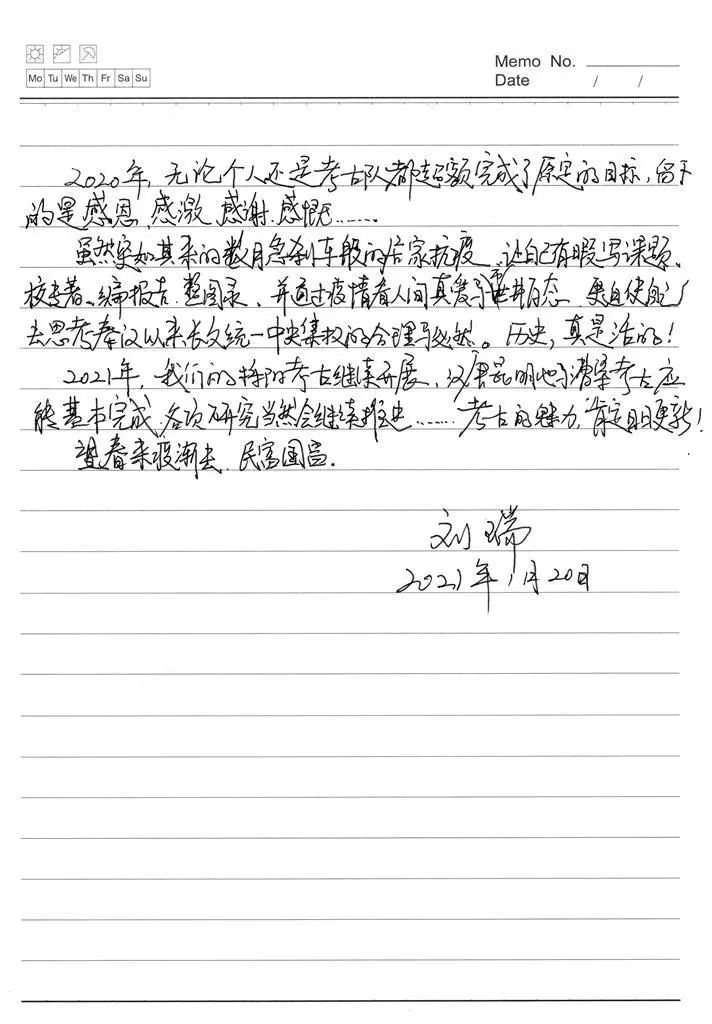 Memo No.
Mo Tu We Th Fr Sa Su
Date / /
2020年,无论个人还是考古队都超额完成了原定的目标,留下
的是感恩、感激、感谢、感慨……
虽然突如其来的数月急刹车般的居家抗疫,让自己有暇写课题、
校专著、编报告、整图录,并通过疫情看人间真爱与世井百态,更自使自己
去思考秦汉以来长久统一中央集权的合理与必然。历史,真是活的!
2021年,我们的阿房考古继续开展,汉唐昆明池与漕渠考古应
能基本完成,各项研究当然会继续推进……考古的魅力,肯定日日更新!
望春来疫渐去,民富国富。
刘瑞
2021年1月20日